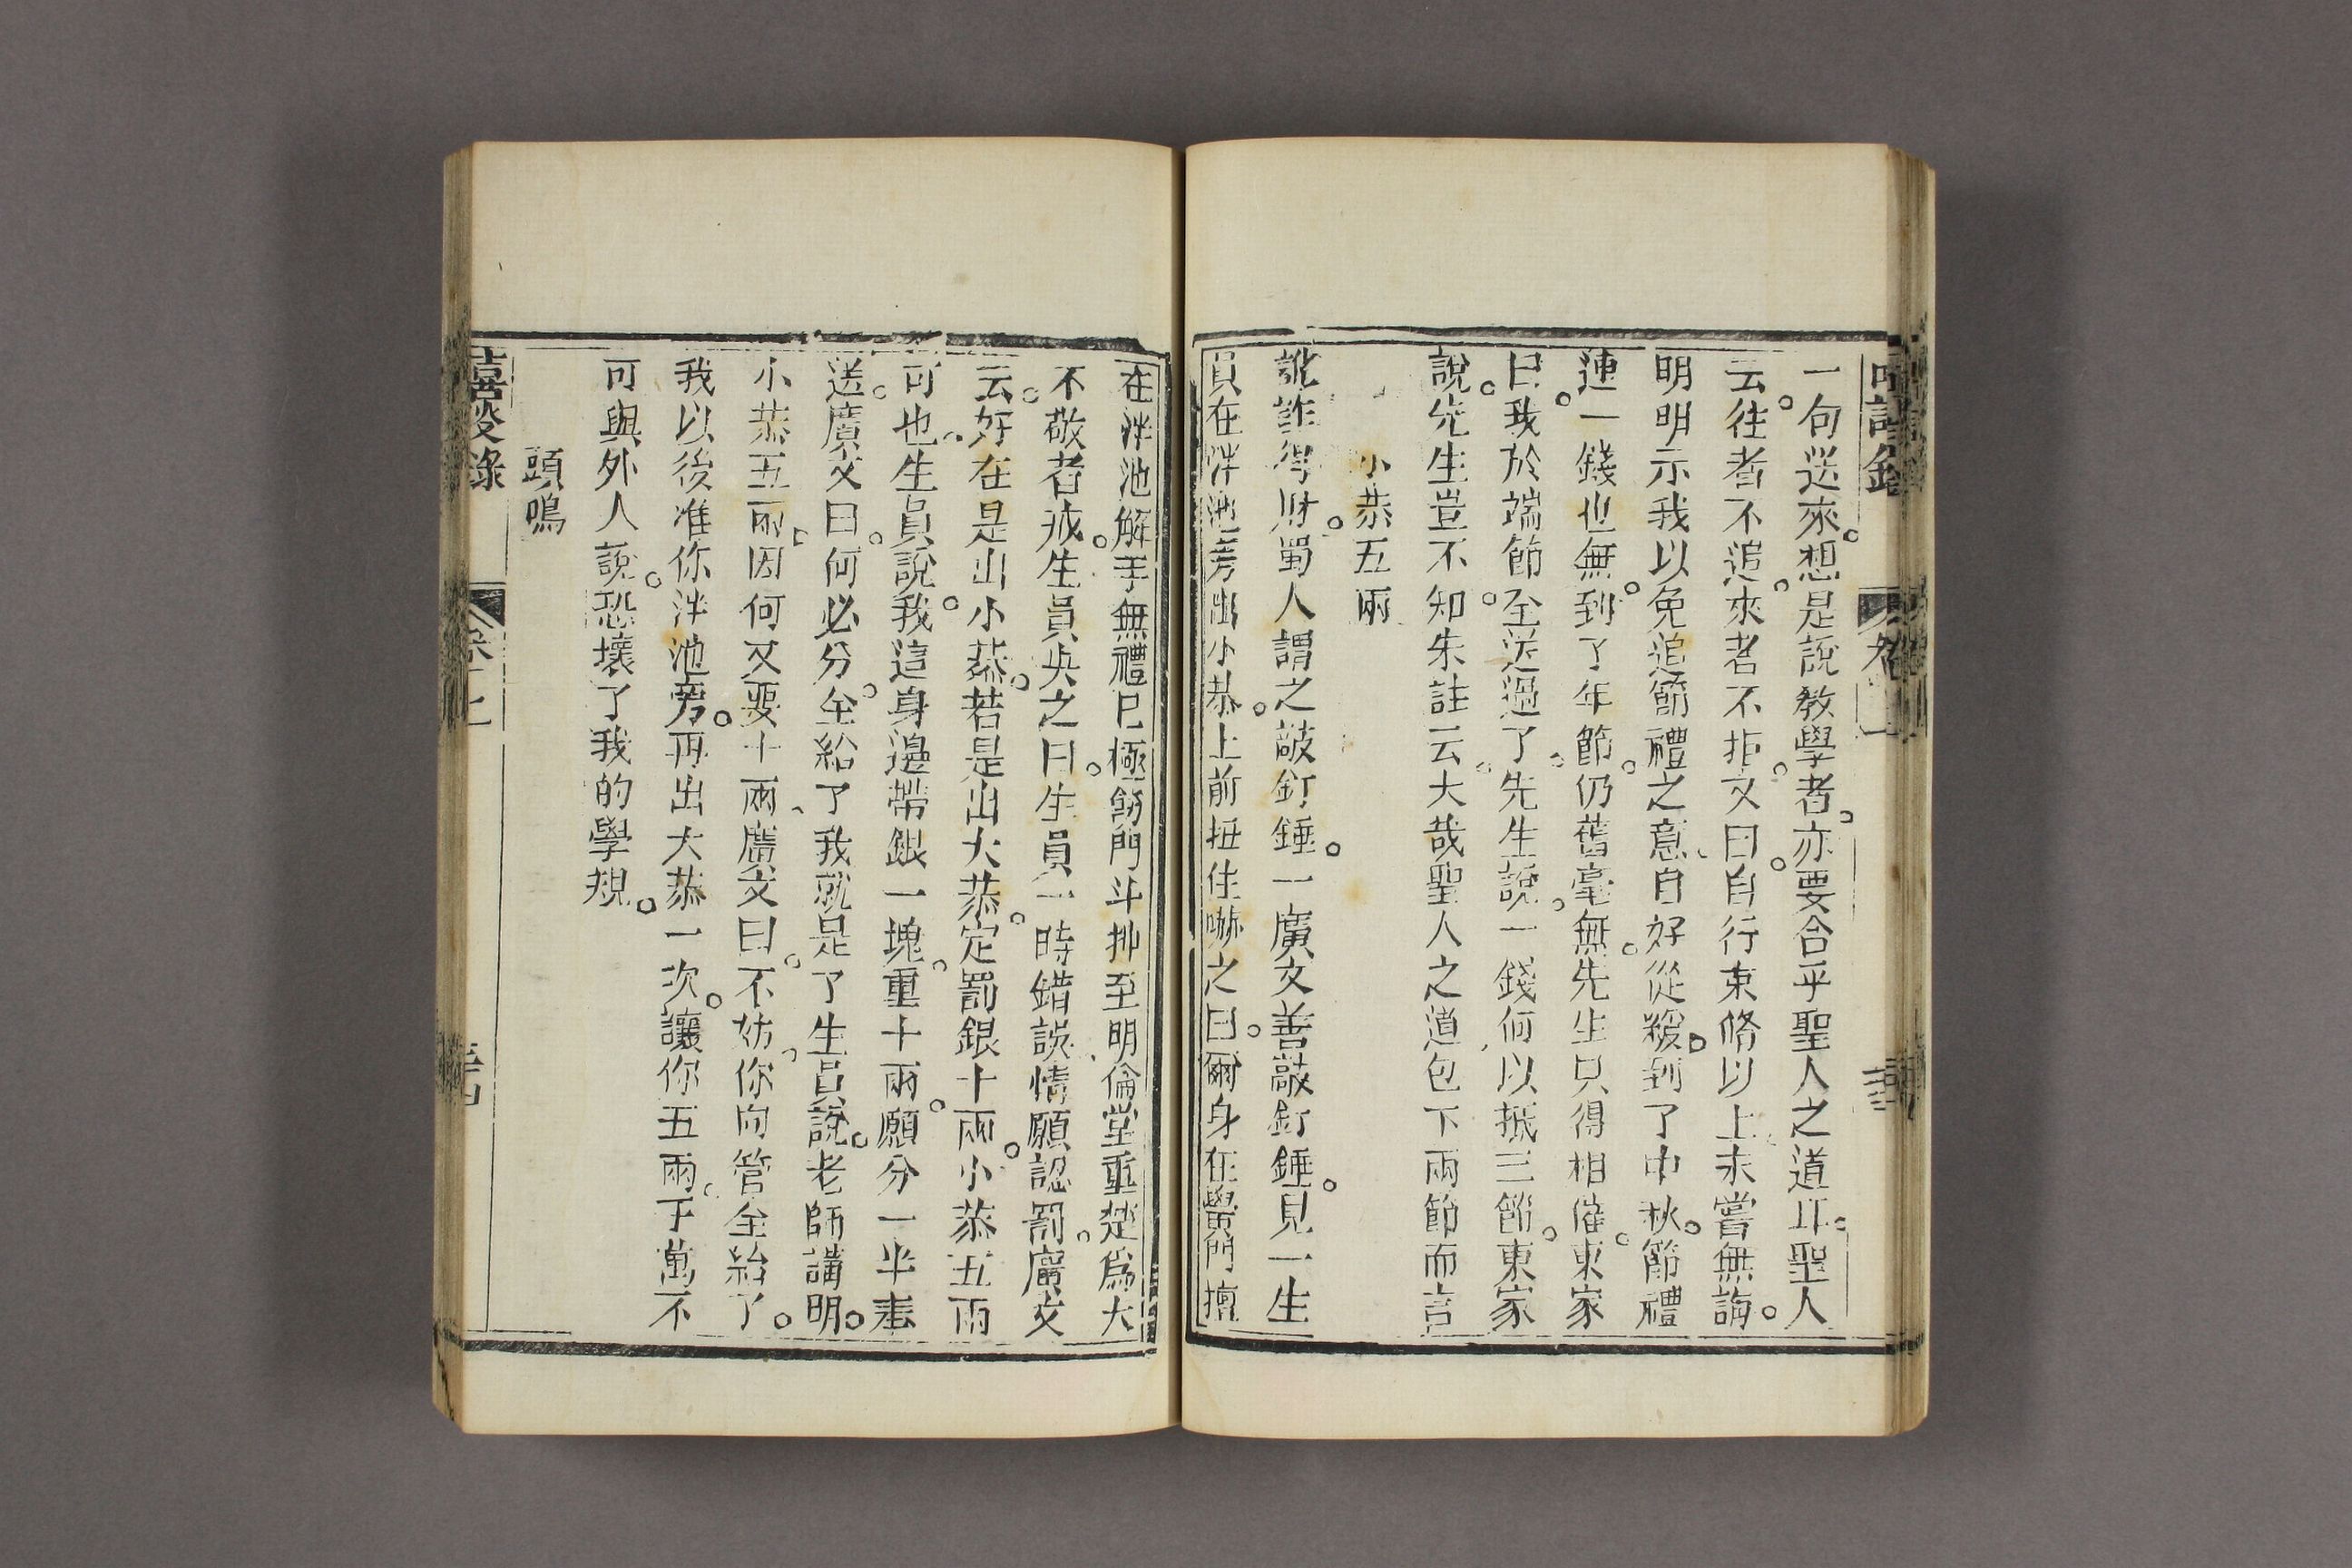 一句送來想是說教學者亦要合乎聖人之道耳聖人
云往者不追來者不拒又曰自行束脩以上未嘗無誨
明明示我以免追節禮之意自好從緩到了中秋節禮
連一錢也無到了年節仍舊毫無先生只得相催東家
曰我於端節全送過了先生說一錢何以抵三節東家
說先生豈不知朱註云大哉聖人之道包下兩節而言
小恭五兩
訛詐得財蜀人謂之敲釘錘一廣文善敲釘錘見一生
員在泮池旁出小恭上前扭住嚇之曰爾身在黌門擅
在泮池解手無禮已極飭門斗押至明倫堂重懲為大
不敬者戒生員央之曰生員一時錯誤情願認罰廣文
云好在是出小恭若是出大恭定罰銀十兩小恭五兩
可也生員說我這身邊帶銀一塊重十兩願分一半奉
送廣文曰何必分全給了我就是了生員說老師講明
小恭五兩因何又要十兩廣文曰不妨你向管全給了
我以後准你泮池旁再出大恭一次讓你五兩千萬不
可與外人說恐壞了我的學規
頭鳴
嘻談錄
卷上